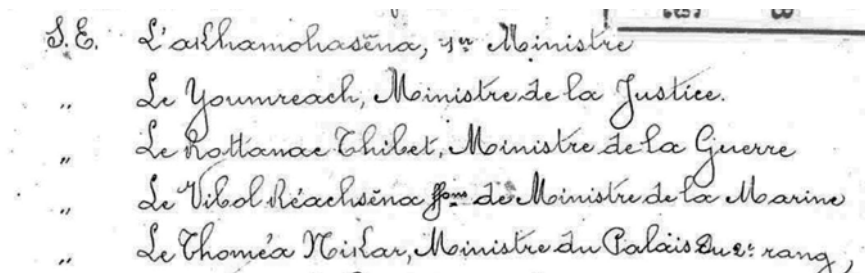 S.E. L'akhamohaséna, 1er Ministre
„ Le Youmreach, Ministre de la Justice.
„ Le Rottanac Thibet, Ministre de la Guerre
„ Le Vibol Réachséna ffons de Ministre de la Marine
„ Le Thoméa Nikar, Ministre du Palais du 2e rang,